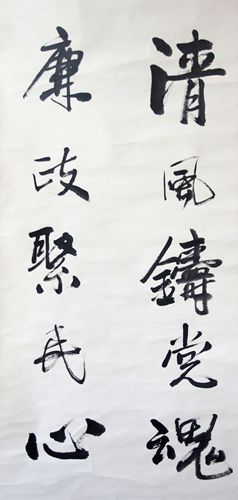 清風鑄党魂
廉政緊民心